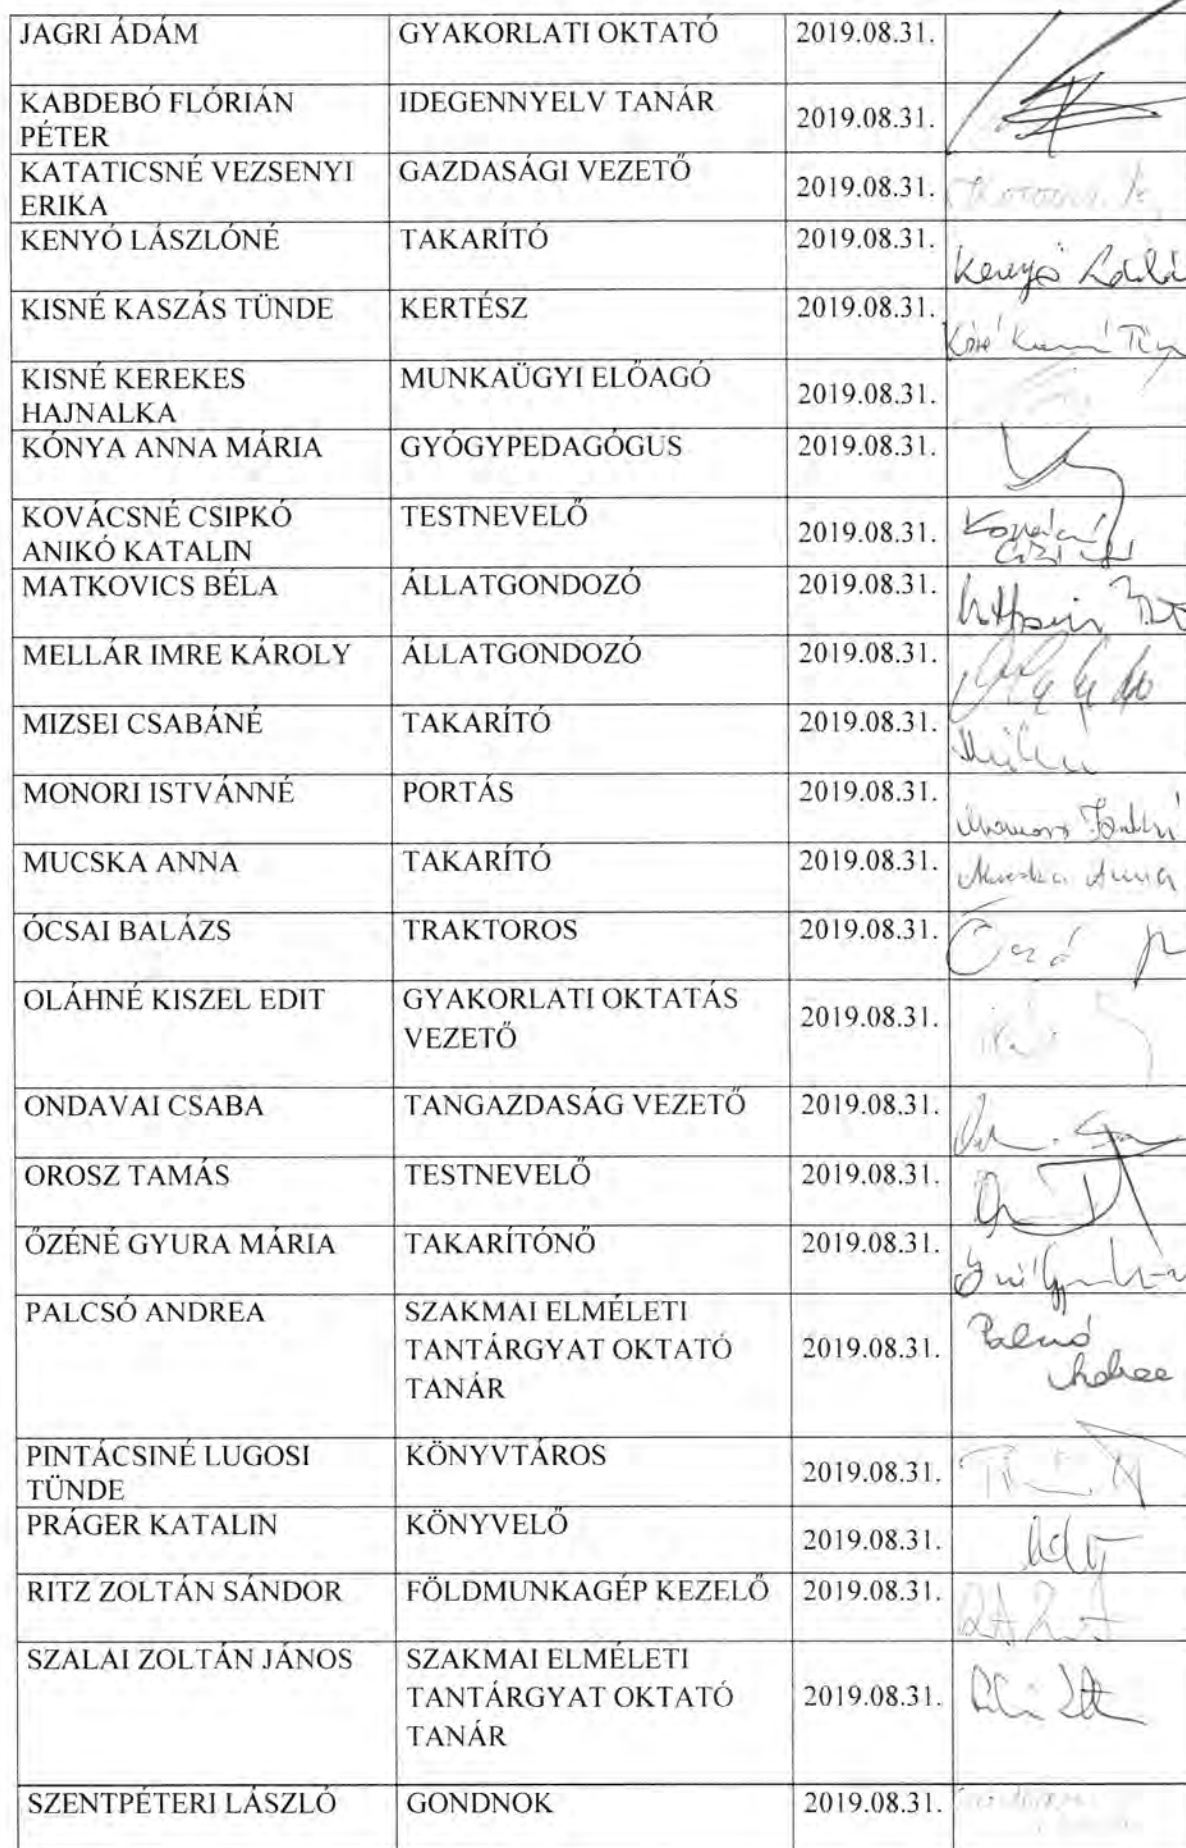 JAGRI ÁDÁM GYAKORLATI OKTATÓ 2019.08.31.
KABDEBÓ FLÓRIÁN PÉTER IDEGENNYELV TANÁR 2019.08.31.
KATATICSNÉ VEZSENYI ERIKA GAZDASÁGI VEZETŐ 2019.08.31.
KENYÓ LÁSZLÓNÉ TAKARÍTÓ 2019.08.31.
KISNÉ KASZÁS TÜNDE KERTÉSZ 2019.08.31.
KISNÉ KEREKES HAJNALKA MUNKAÜGYI ELŐAGÓ 2019.08.31.
KÓNYA ANNA MÁRIA GYÓGYPEDAGÓGUS 2019.08.31.
KOVÁCSNÉ CSIPKÓ ANIKÓ KATALIN TESTNEVELŐ 2019.08.31.
MATKOVICS BÉLA ÁLLATGONDOZÓ 2019.08.31.
MELLÁR IMRE KÁROLY ÁLLATGONDOZÓ 2019.08.31.
MIZSEI CSABÁNÉ TAKARÍTÓ 2019.08.31.
MONORI ISTVÁNNÉ PORTÁS 2019.08.31.
MUCSKA ANNA TAKARÍTÓ 2019.08.31. Mucska Anna
ÓCSAI BALÁZS TRAKTOROS 2019.08.31.
OLÁHNÉ KISZEL EDIT GYAKORLATI OKTATÁS VEZETŐ 2019.08.31.
ONDAVAI CSABA TANGAZDASÁG VEZETŐ 2019.08.31.
OROSZ TAMÁS TESTNEVELŐ 2019.08.31.
ŐZÉNÉ GYURA MÁRIA TAKARÍTÓNŐ 2019.08.31.
PALCSÓ ANDREA SZAKMAI ELMÉLETI TANTÁRGYAT OKTATÓ TANÁR 2019.08.31. Palcsó Andrea
PINTÁCSINÉ LUGOSI TÜNDE KÖNYVTÁROS 2019.08.31.
PRÁGER KATALIN KÖNYVELŐ 2019.08.31.
RITZ ZOLTÁN SÁNDOR FÖLDMUNKAGÉP KEZELŐ 2019.08.31.
SZALAI ZOLTÁN JÁNOS SZAKMAI ELMÉLETI TANTÁRGYAT OKTATÓ TANÁR 2019.08.31.
SZENTPÉTERI LÁSZLÓ GONDNOK 2019.08.31.